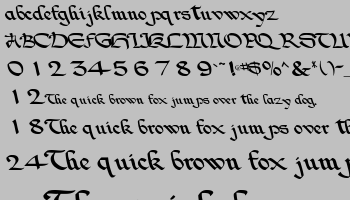 abcdefghijklmnopqrstuvwxyz
ABCDEFGHIJKLMNOPQRSTU
0 1 2 3 4 5 6 7 8 9 ~`!@#$%^&*()-
1 2 The quick brown fox jumps over the lazy dog.
1 8 The quick brown fox jumps over th
2 4 The quick brown fox jump